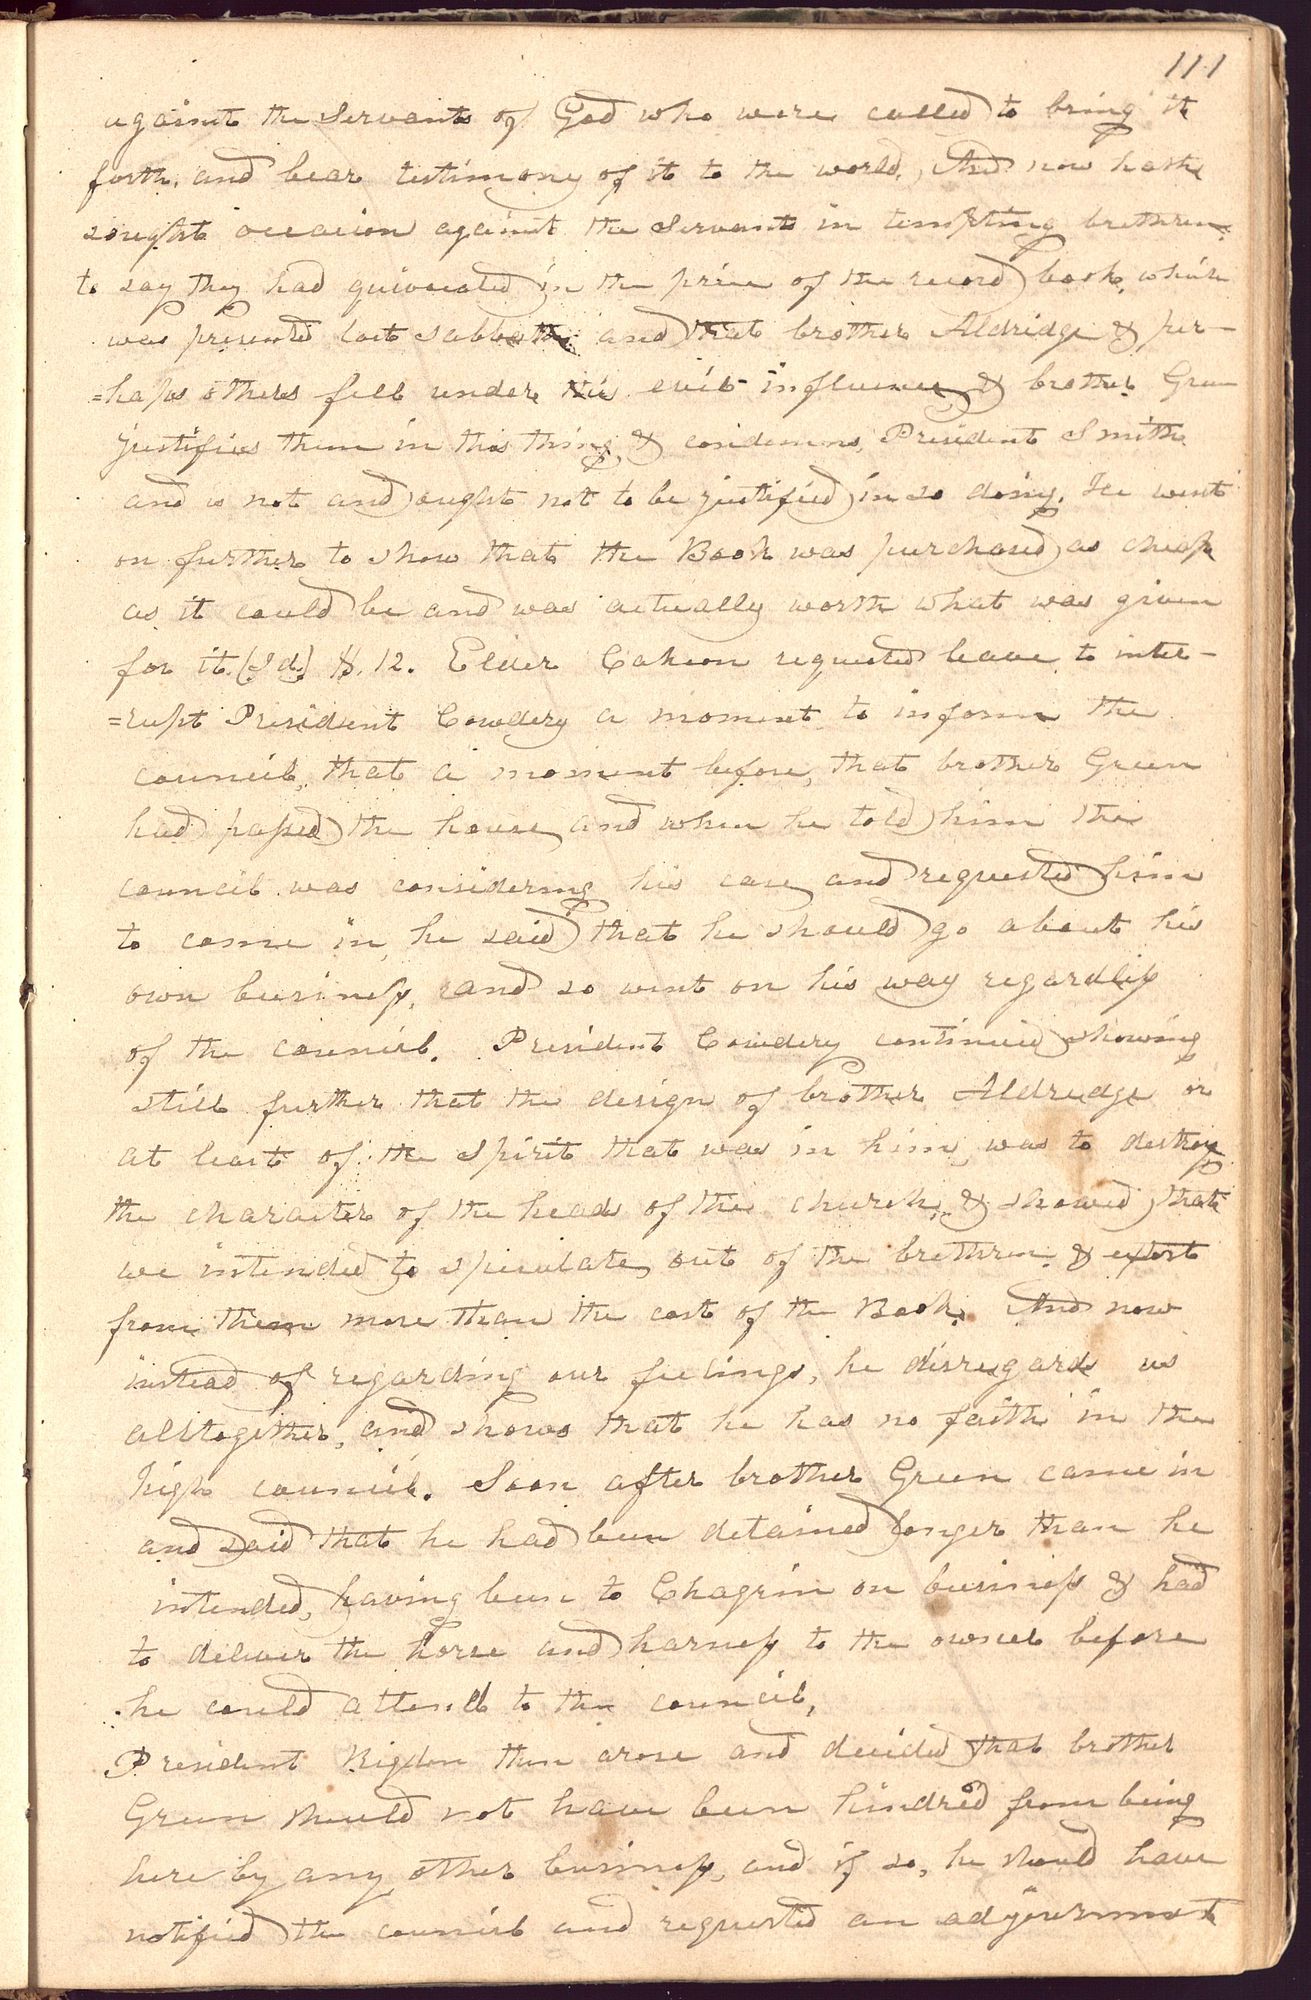 111
against the Servants of God who were called to bring it
forth, and bear testimony of it to the world, And now hath
sought occasion against the Servants in tempting brethren
to say they had quivocated in the price of the record book, which
was presented last sabbath and that brother Aldridge & per-
=haps others fell under his evil influence & brother Green
justifies them in this thing, & condemns President Smith
and is not and ought not to be justified in so doing. He went
on further to show that the Book was purchased as cheap
as it could be and was actually worth what was given
for it. (Id.) $.12. Elder Cahoon requested leave to inter-
=rupt President Cowdery a moment to inform the
council, that a moment before, that brother Green
had passed the house, and when he told him the
council was considering his case, and requested him
to come in, he said that he should go about his
own business, and so went on his way regardless
of the council. President Cowdery continued showing
still further that the design of brother Aldredge or
at least of the spirit that was in him, was to destroy
the character of the heads of the church, & showed that
we intended to speculate out of the brethren, & extort
from them more than the cost of the Book. And now
instead of regarding our feelings, he disregards us
altogether, and shows that he has no faith in the
high council. Soon after brother Green came in
and said that he had been detained longer than he
intended, having been to Chagrin on business & had
to deliver the horse and harness to the owner before
he could attend to the council,
President Rigdon then arose and decided that brother
Green should not have been hindred from being
here by any other business, and if so, he should have
notified the council and requested an adjournment